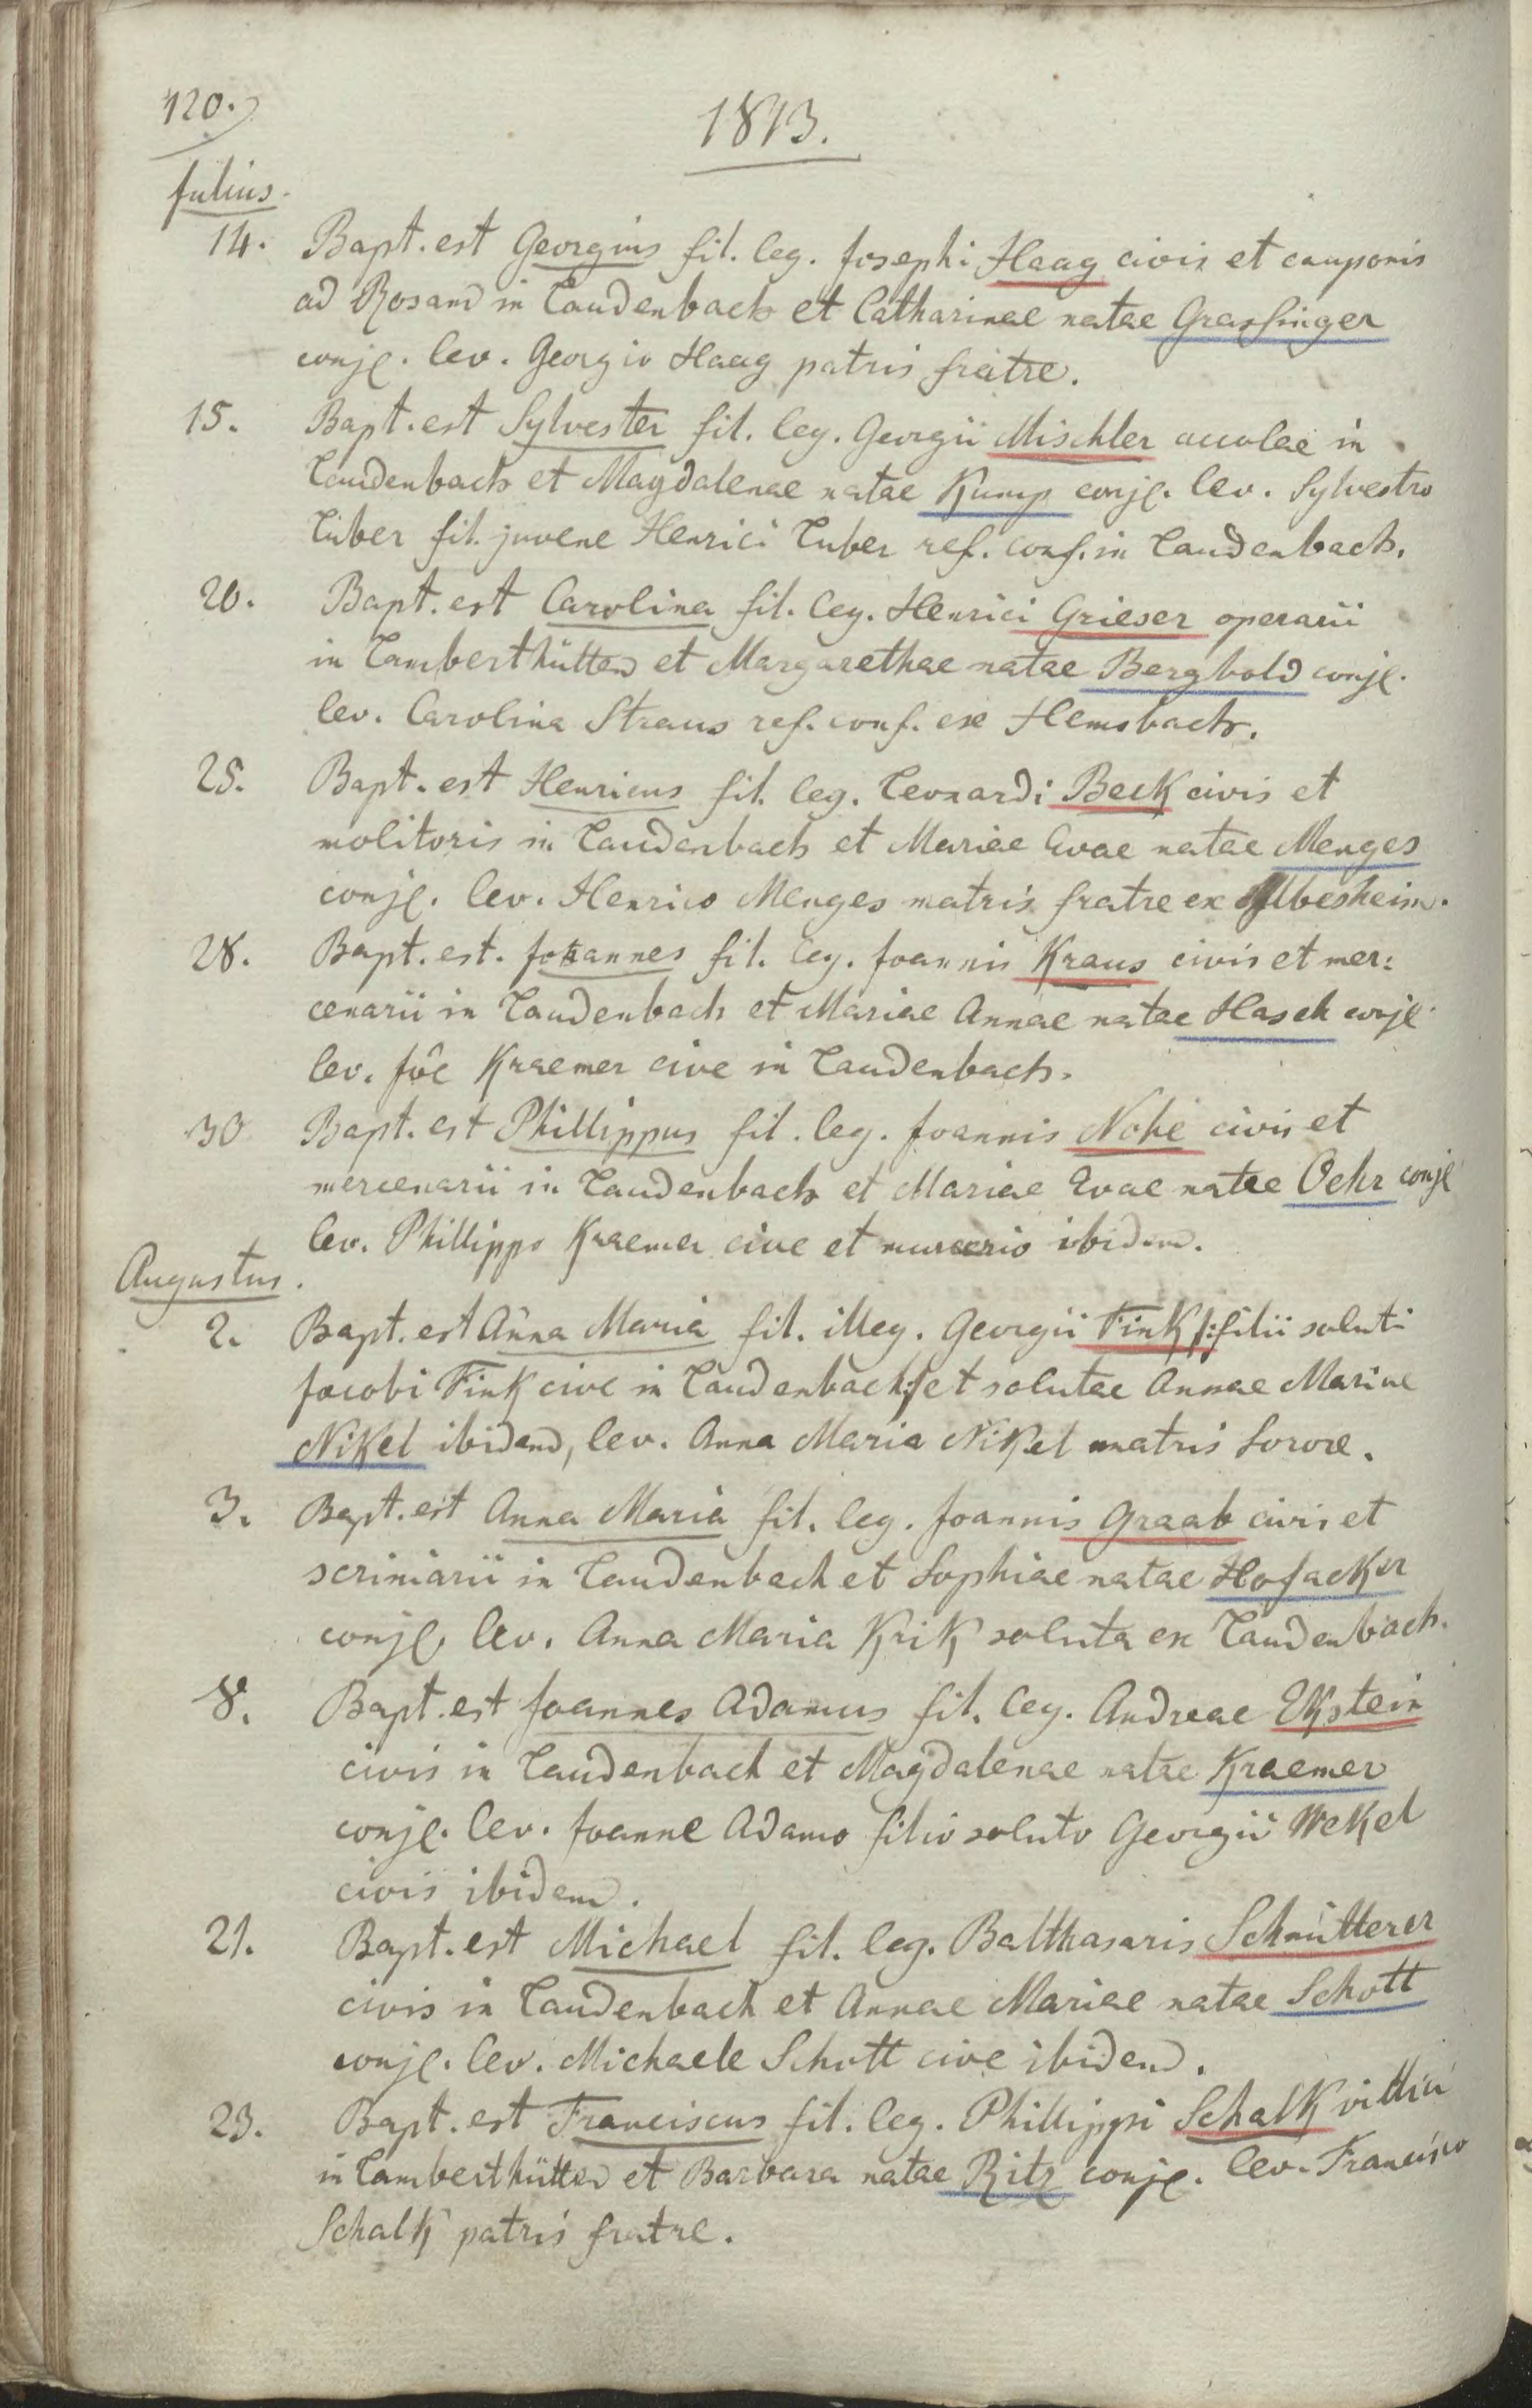 120.
1813.
Julius.
14. Bapt. est Georgius fil. leg. Josephi Haag civis et cauponis
ad Rosam in Laudenbach et Catharinae natae Grassinger
conjg. lev. Georgio Haag patris fratre.
15. Bapt. est Sylvester fil. leg. Georgii Mischler accolae in
Laudenbach et Magdalenae natae Kump conjg. lev. Sylvestro
Luber fil. juvene Henrici Luber ref. conf. in Laudenbach.
20. Bapt. est Carolina fil. leg. Henrici Grieser operarii
in Lamberthütten et Margarethae natae Bergbold conjg.
lev. Carolina Straus ref. conf. ex Hemsbach.
25. Bapt. est Henricus fil. leg. Leonardi Beck civis et
molitoris in Laudenbach et Mariae Evae natae Menges
conjg. lev. Henrico Menges matris fratre ex
28. Bapt. est. Johannes fil. leg. Joannis Kraus civis et mer:
cenarii in Laudenbach et Mariae Annae natae Hasek conjg.
lev. Jôe Kraemer cive in Laudenbach.
30 Bapt. est Phillippus fil. leg. Joannis Nohe civis et
mercenarii in Laudenbach et Mariae Evae natae Oehr conjg
lev. Phillippo Kraemer cive et ibidem.
Augustus.
2. Bapt. est Anna Maria fil. illeg. Georgii Fink /:filii soluti
Jacobi Fink cive in Laudenbach:/ et solutae Annae Mariae
Nikel ibidem, lev. Anna Maria Nikel matris Sorore.
3. Bapt. est Anna Maria fil. leg. Joannis Graab civis et
scriniarii in Laudenbach et Sophiae natae Hofacker
conjg. lev. Anna Maria Krik soluta ex Laudenbach.
8. Bapt. est Joannes Adamus fil. leg. Andreae Ekstein
civis in Laudenbach et Magdalenae natae Kraemer
conjg. lev. Joanne Adamo filio soluto Georgii Wekel
civis ibidem.
21. Bapt. est Michael fil. leg. Balthasaris Schmitterer
civis in Laudenbach et Annae Mariae natae Schott
conjg. lev. Michaele Schott cive ibidem.
23. Bapt. est Franciscus fil. leg. Phillippi Schalk villici
in Lamberthütten et Barbara natae Ritz conjg. lev. Francisco
Schalk patris fratre.